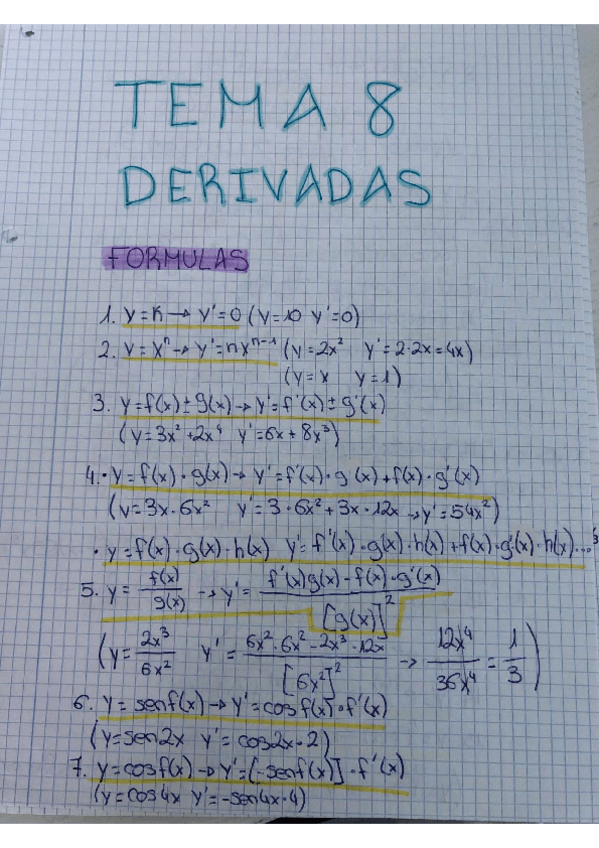 TEMA 8
DERIVADAS
FORMULAS
1. y=K → y'=0 (y=10 y'=0)
2. y=xⁿ → y'=nxⁿ⁻¹ (y=2x² y'=2·2x=4x)
(y=x y=1)
3. y=f(x)±g(x) → y'=f'(x)±g'(x)
(y=3x²+2x⁴ y'=6x+8x³)
4. · y=f(x)·g(x) → y'=f'(x)·g(x)+f(x)·g'(x)
(y=3x·6x² y'=3·6x²+3x·12x → y'=54x²)
· y=f(x)·g(x)·h(x) y'=f'(x)·g(x)·h(x)+f(x)·g'(x)·h(x)...
5. y= f(x)/g(x) → y'= f'(x)g(x)-f(x)·g'(x)/[g(x)]²
(y= 2x³/6x² y'= 6x²·6x²-2x³·12x/[6x²]² → 12x⁴/36x⁴ = 1/3)
6. y=senf(x) → y'=cosf(x)·f'(x)
(y=sen2x y'=cos2x·2)
7. y=cosf(x) → y'=[-senf(x)]·f'(x)
(y=cos4x y'=-sen4x·4)